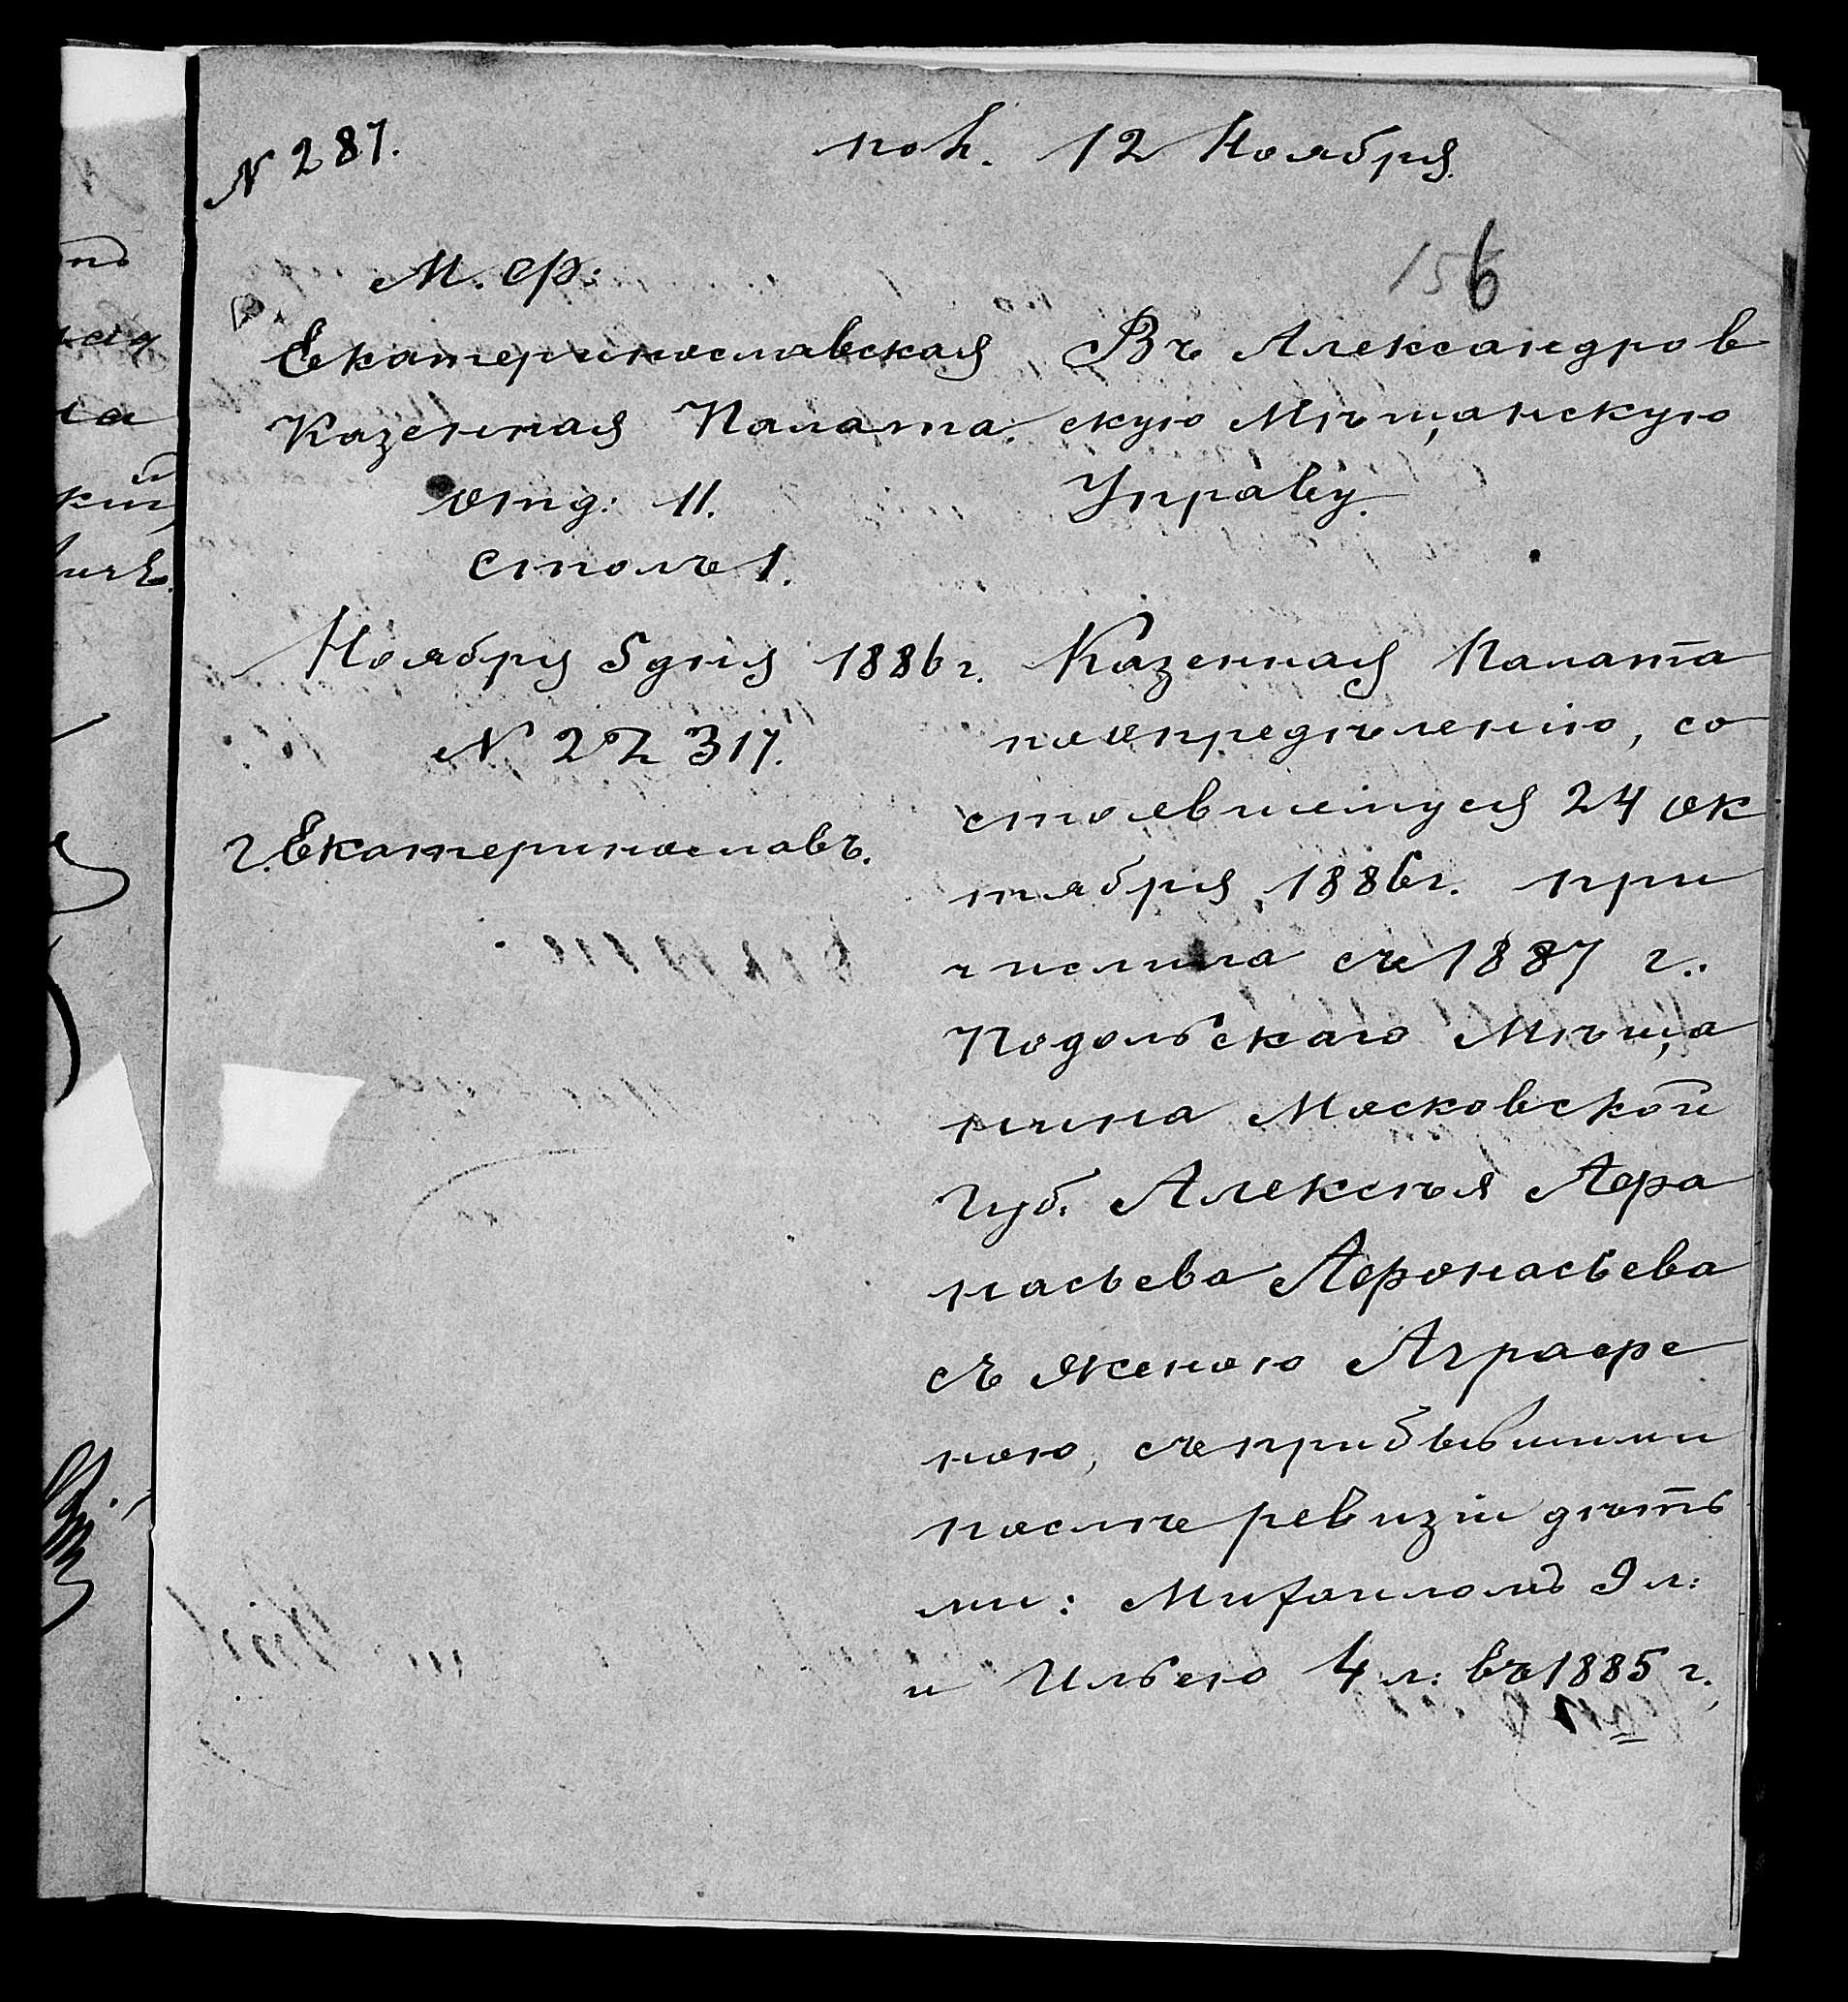 N 287.
пол. 12 Ноября.
156
М. Ф:
Екатеринославская
Казенная Палата.
отд: II.
столъ 1.
Ноября 5 дня 1886 г.
N 22317.
г. Екатеринославъ.
Въ Александров
скую Мѣщанскую
Управу.
Казенная Палата
по опредѣленію, со
стоявшемуся 24 ок
тября 1886 г. при
числила съ 1887 г.
Подольскаго Мѣща
нина Московской
Губ. Алексѣя Афа
насьева Афонасьева
съ женою Аграфе
ною, съ прибывшими
послѣ ревизіи дѣть
ми: Михаиломъ 9 л:
и Ильею 4 л: въ 1885 г.,